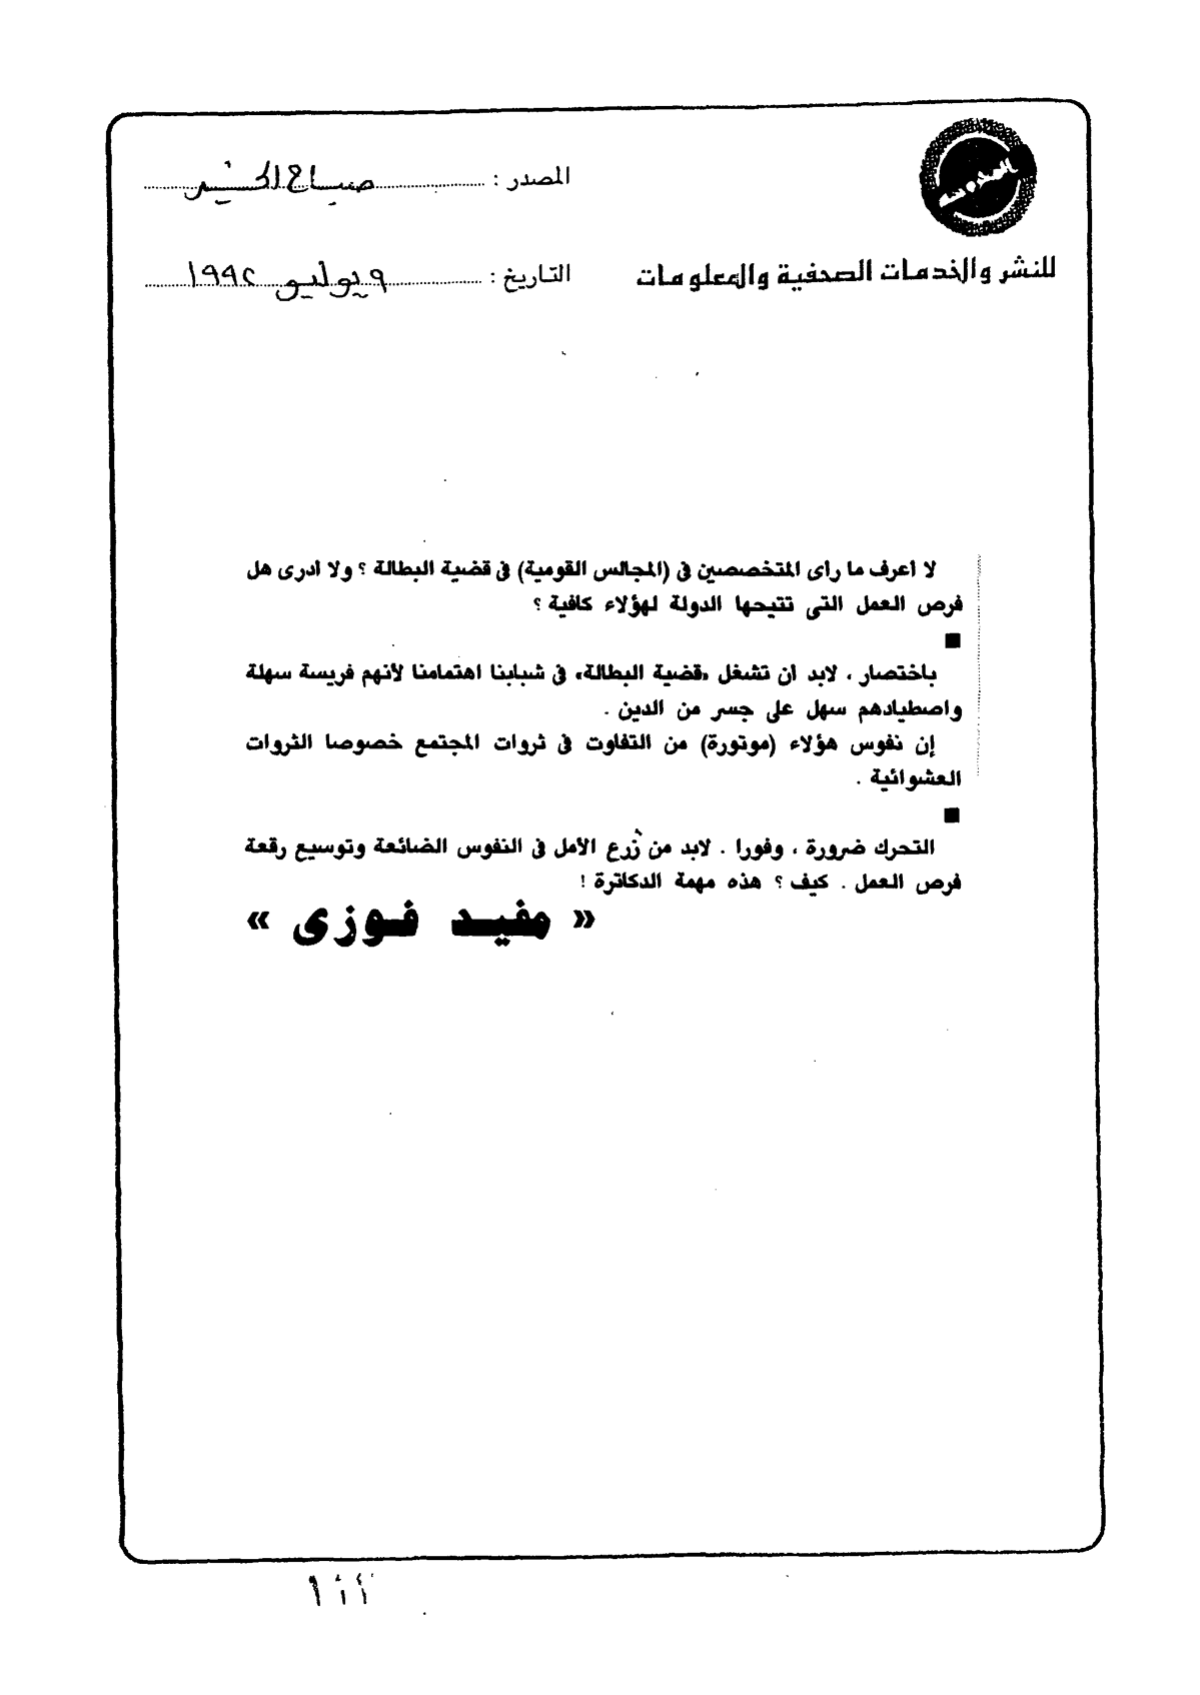 المصدر : صباح الخير
للنشر والخدمات الصحفية والمعلومات
التاريخ : ٩ يوليو ١٩٩٢
لا أعرف ما رأى المتخصصين فى (المجالس القومية) فى قضية البطالة ؟ ولا أدرى هل
فرص العمل التى تتيحها الدولة لهؤلاء كافية ؟
■
باختصار ، لابد ان تشغل «قضية البطالة» فى شبابنا اهتمامنا لأنهم فريسة سهلة
واصطيادهم سهل على جسر من الدين .
إن نفوس هؤلاء (موتورة) من التفاوت فى ثروات المجتمع خصوصا الثروات
العشوائية .
■
التحرك ضرورة ، وفورا . لابد من زرع الأمل فى النفوس الضائعة وتوسيع رقعة
فرص العمل . كيف ؟ هذه مهمة الدكاترة !
« مفيد فوزى »